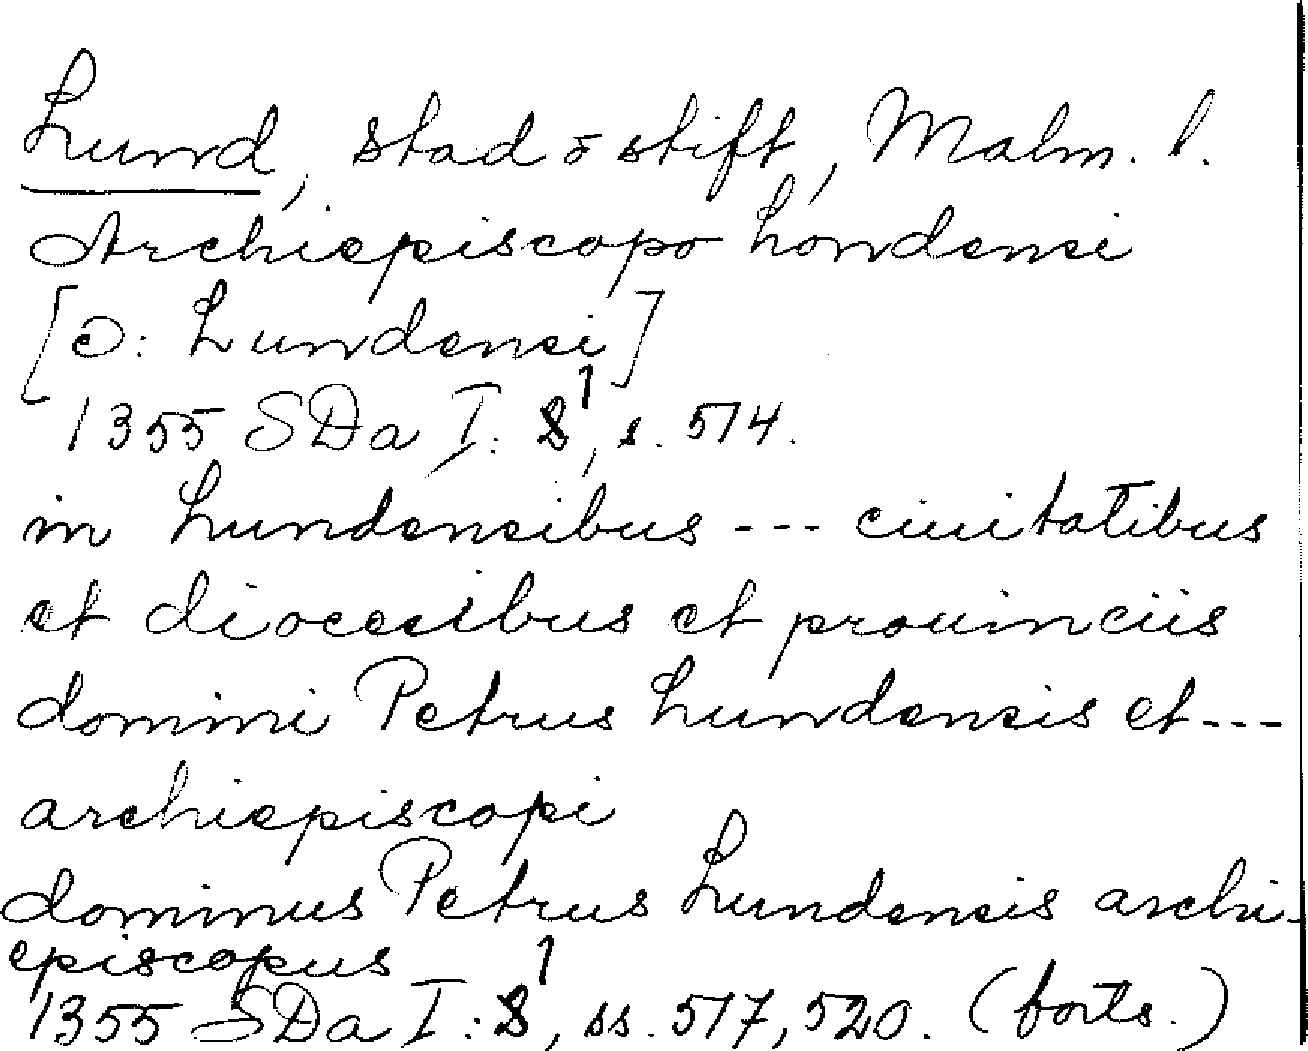 Lund, stad o stift, Malm. l.
Archiepiscopo Londensi
[ɔ: Lundensi]
1355 SDa I: 1, s. 514.
in Lundensibus --- ciuitatibus
et diocesibus et prouinciis
domini Petrus Lundensis et ---
archiepiscopi
dominus Petrus Lundensis archi-
episcopus
1355 SDa I: 1, ss. 517, 520. (forts.)